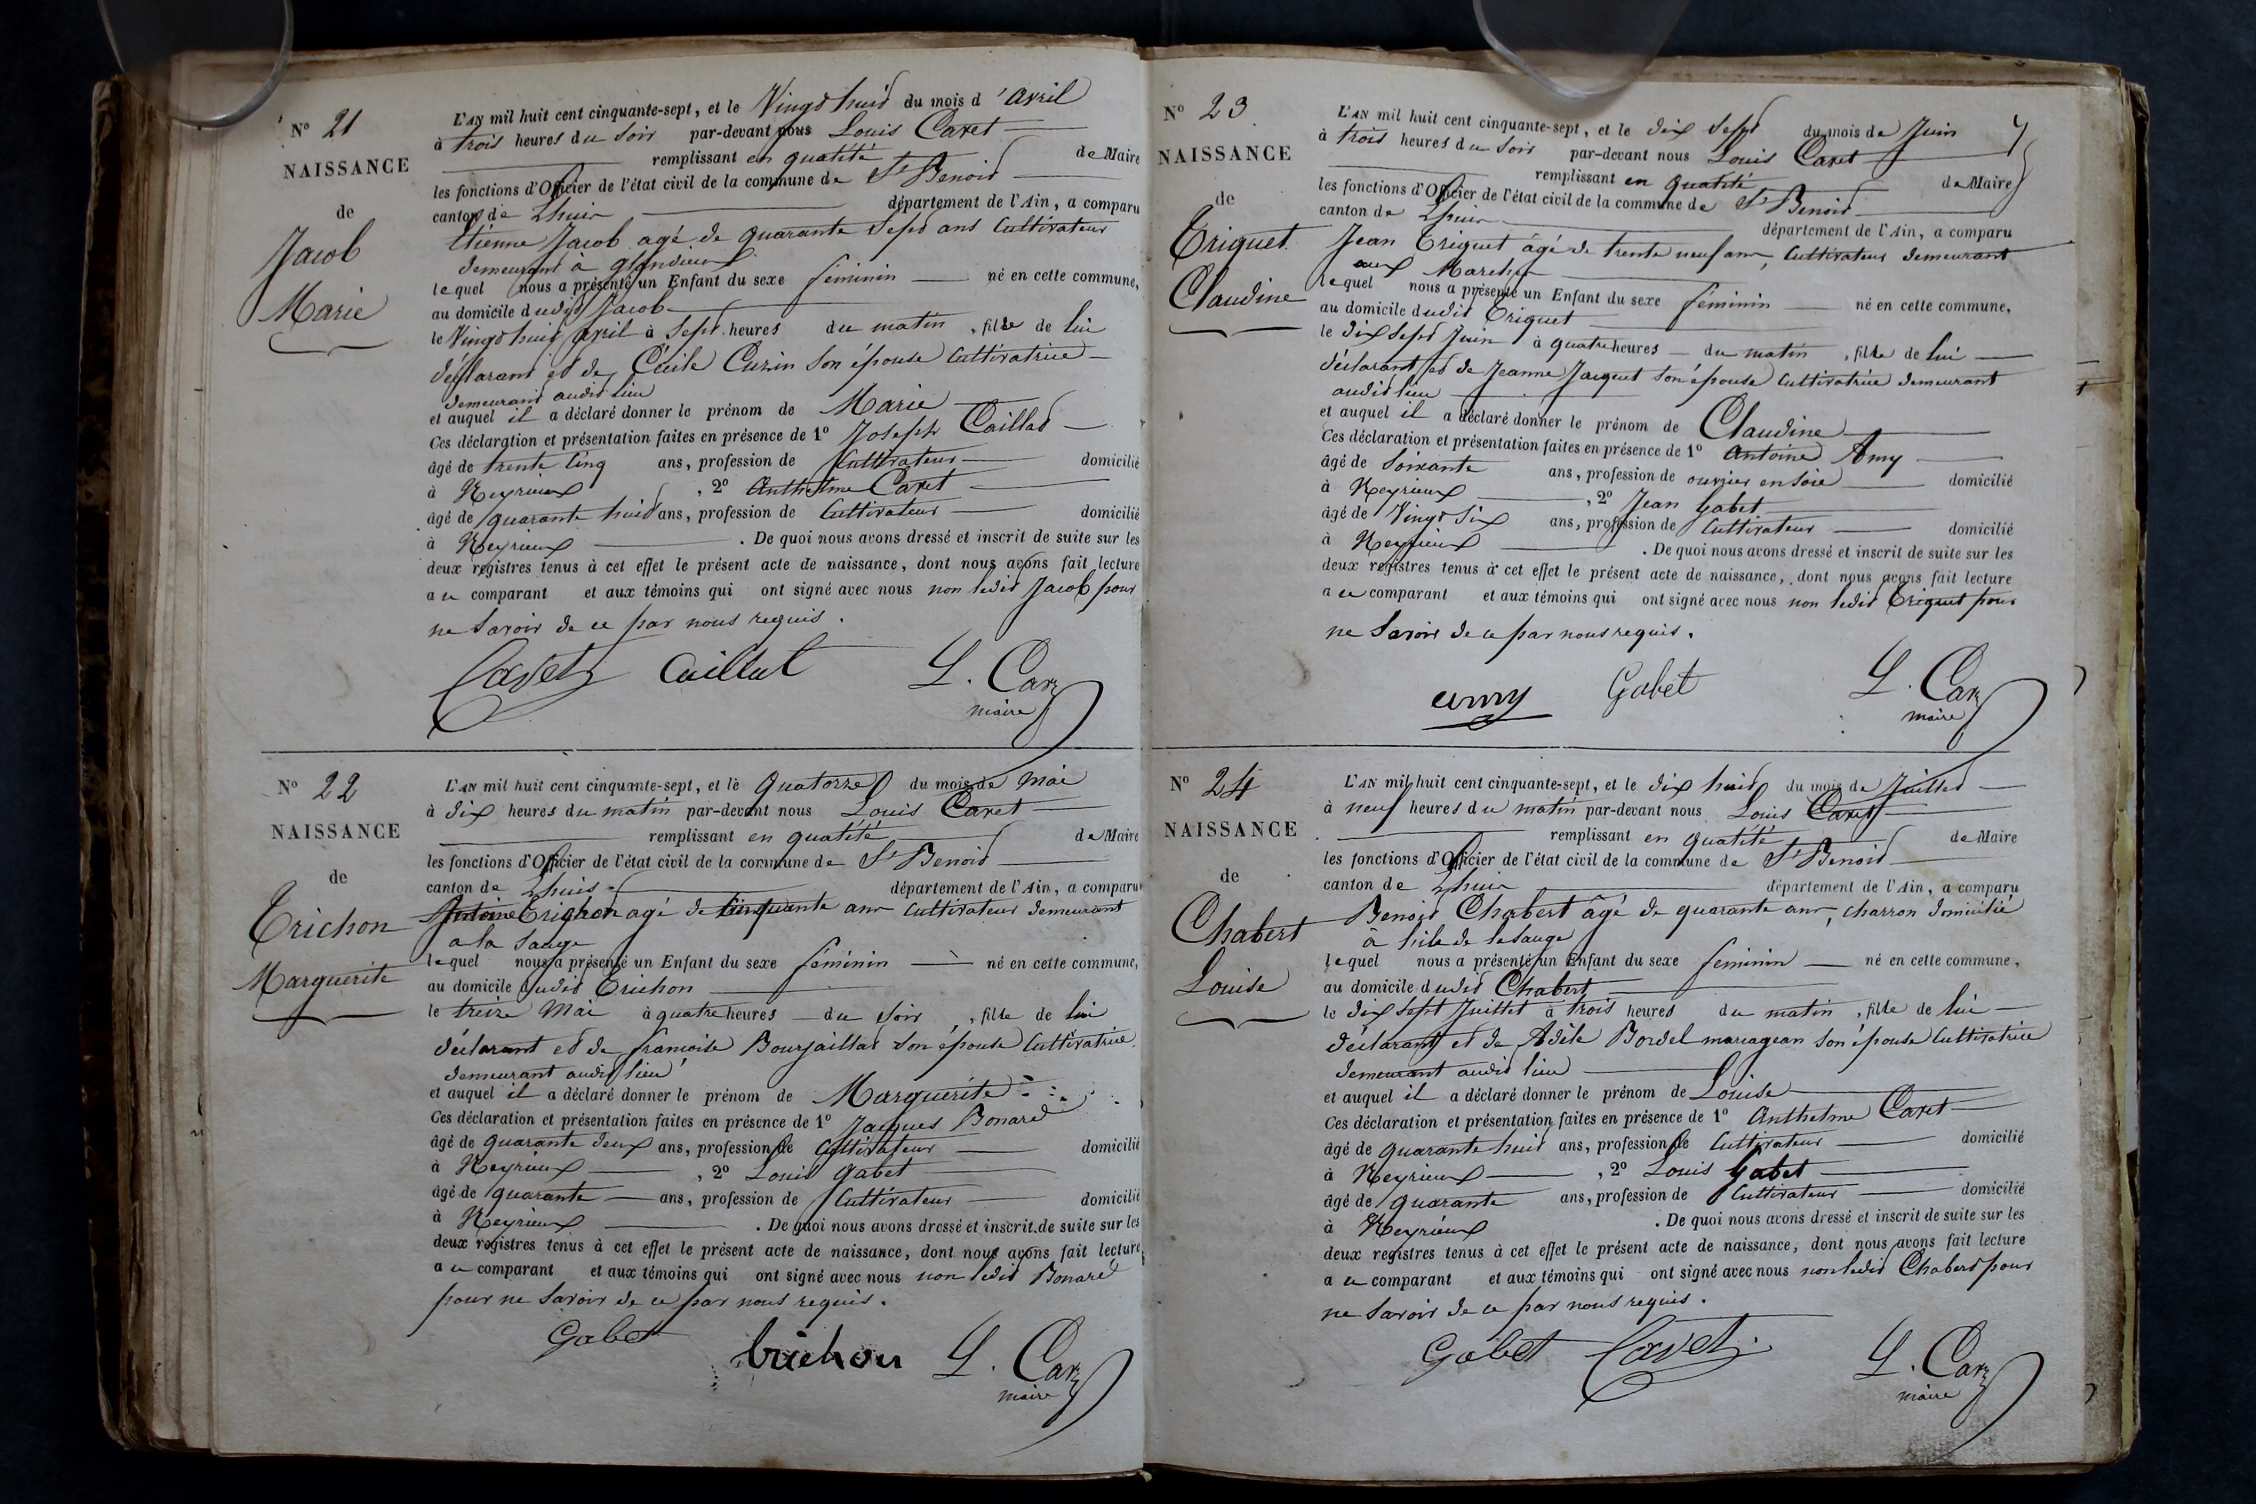 N° 21
NAISSANCE
de
Jacob
Marie
L'AN mil huit cent cinquante-sept, et le Vingt huit du mois d'avril
à trois heures du soir par-devant nous Louis Cavet
remplissant en qualité de Maire
les fonctions d'Officier de l'état civil de la commune de St Benoit
canton de Lhuis département de l'Ain, a comparu
Etienne Jacob agé de quarante sept ans Cultivateur
demeurant à glandieux
lequel nous a présenté un Enfant du sexe féminin né en cette commune,
au domicile dudit Jacob
le Vingt huit avril à sept heures du matin, fille de lui
déclarant et de Cécile Curin son épouse Cultivatrice
demeurant audit lieu
et auquel il a déclaré donner le prénom de Marie
Ces déclaration et présentation faites en présence de 1° Joseph Caillat
âgé de trente cinq ans, profession de Cultivateur domicilié
à Neyrieux, 2° Anthelme Cavet
âgé de quarante huit ans, profession de Cultivateur domicilié
à Neyrieux. De quoi nous avons dressé et inscrit de suite sur les
deux registres tenus à cet effet le présent acte de naissance, dont nous avons fait lecture
au comparant et aux témoins qui ont signé avec nous non ledit Jacob pour
ne savoir de ce par nous requis.
Cavet Caillat L. Cavet
maire
N° 22
NAISSANCE
de
Trichon
Marguerite
L'AN mil huit cent cinquante-sept, et le Quatorze du mois de mai
à dix heures du matin par-devant nous Louis Cavet
remplissant en qualité de Maire
les fonctions d'Officier de l'état civil de la commune de St Benoit
canton de Lhuis département de l'Ain, a comparu
Antoine Trichon agé de Cinquante ans Cultivateur demeurant
a la Sauge
lequel nous a présenté un Enfant du sexe féminin né en cette commune,
au domicile dudit Trichon
le treize Mai à quatre heures du soir, fille de lui
déclarant et de françoise Bourjaillat son épouse Cultivatrice
demeurant audit lieu
et auquel il a déclaré donner le prénom de Marguerite
Ces déclaration et présentation faites en présence de 1° Jacques Bonard
âgé de quarante deux ans, profession de Cultivateur domicilié
à Neyrieux, 2° Louis Gabet
âgé de quarante ans, profession de Cultivateur domicilié
à Neyrieux. De quoi nous avons dressé et inscrit de suite sur les
deux registres tenus à cet effet le présent acte de naissance, dont nous avons fait lecture
au comparant et aux témoins qui ont signé avec nous non ledit Bonard
pour ne savoir de ce par nous requis.
Gabet trichon L. Cavet
maire
N° 23
NAISSANCE
de
Triquet
Claudine
L'AN mil huit cent cinquante-sept, et le dix sept du mois de Juin
à trois heures du soir par-devant nous Louis Cavet
remplissant en qualité de Maire
les fonctions d'Officier de l'état civil de la commune de St Benoit
canton de Lhuis département de l'Ain, a comparu
Jean Triquet âgé de trente neuf ans, Cultivateur demeurant
aux Marches
lequel nous a présenté un Enfant du sexe féminin né en cette commune,
au domicile dudit Triquet
le dix sept Juin à quatre heures du matin, fille de lui
déclarant et de Jeanne Jacquet son épouse Cultivatrice demeurant
audit lieu
et auquel il a déclaré donner le prénom de Claudine
Ces déclaration et présentation faites en présence de 1° Antoine Amy
âgé de soixante ans, profession de ouvrier en soie domicilié
à Neyrieux, 2° Jean Gabet
âgé de Vingt six ans, profession de Cultivateur domicilié
à Neyrieux. De quoi nous avons dressé et inscrit de suite sur les
deux registres tenus à cet effet le présent acte de naissance, dont nous avons fait lecture
au comparant et aux témoins qui ont signé avec nous non ledit Triquet pour
ne savoir de ce par nous requis.
amy Gabet L. Cavet
maire
N° 24
NAISSANCE
de
Chabert
Louise
L'AN mil huit cent cinquante-sept, et le dix huit du mois de Juillet
à neuf heures du matin par-devant nous Louis Cavet
remplissant en qualité de Maire
les fonctions d'Officier de l'état civil de la commune de St Benoit
canton de Lhuis département de l'Ain, a comparu
Benoit Chabert âgé de quarante ans, charron domicilié
à de la Sauge
lequel nous a présenté un Enfant du sexe féminin né en cette commune,
au domicile dudit Chabert
le dix sept Juillet à trois heures du matin, fille de lui
déclarant et de Adèle Bordel son épouse Cultivatrice
demeurant audit lieu
et auquel il a déclaré donner le prénom de Louise
Ces déclaration et présentation faites en présence de 1° Anthelme Cavet
âgé de quarante huit ans, profession de Cultivateur domicilié
à Neyrieux, 2° Louis Gabet
âgé de quarante ans, profession de Cultivateur domicilié
à Neyrieux. De quoi nous avons dressé et inscrit de suite sur les
deux registres tenus à cet effet le présent acte de naissance, dont nous avons fait lecture
au comparant et aux témoins qui ont signé avec nous non ledit Chabert pour
ne savoir de ce par nous requis.
Gabet Cavet L. Cavet
maire